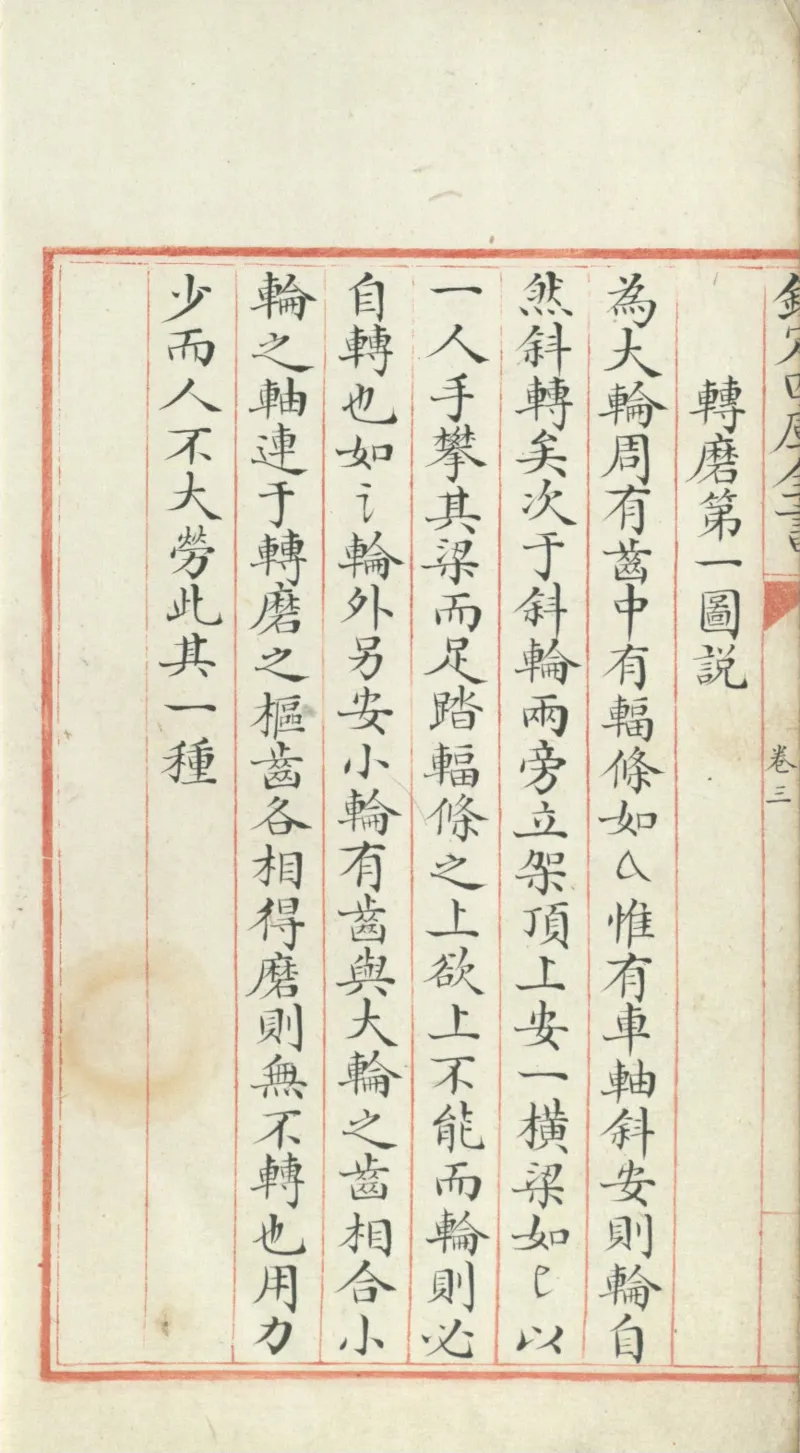 欽定四庫全書
卷三
轉磨第一圖説
為大輪周有齒中有輻條如㇏惟有車軸斜安則輪自
然斜轉矣次于斜輪兩旁立架頂上安一橫梁如㇟以
一人手攀其梁而足踏輻條之上欲上不能而輪則必
自轉也如讠輪外另安小輪有齒與大輪之齒相合小
輪之軸連于轉磨之樞齒各相得磨則無不轉也用力
少而人不大勞此其一種